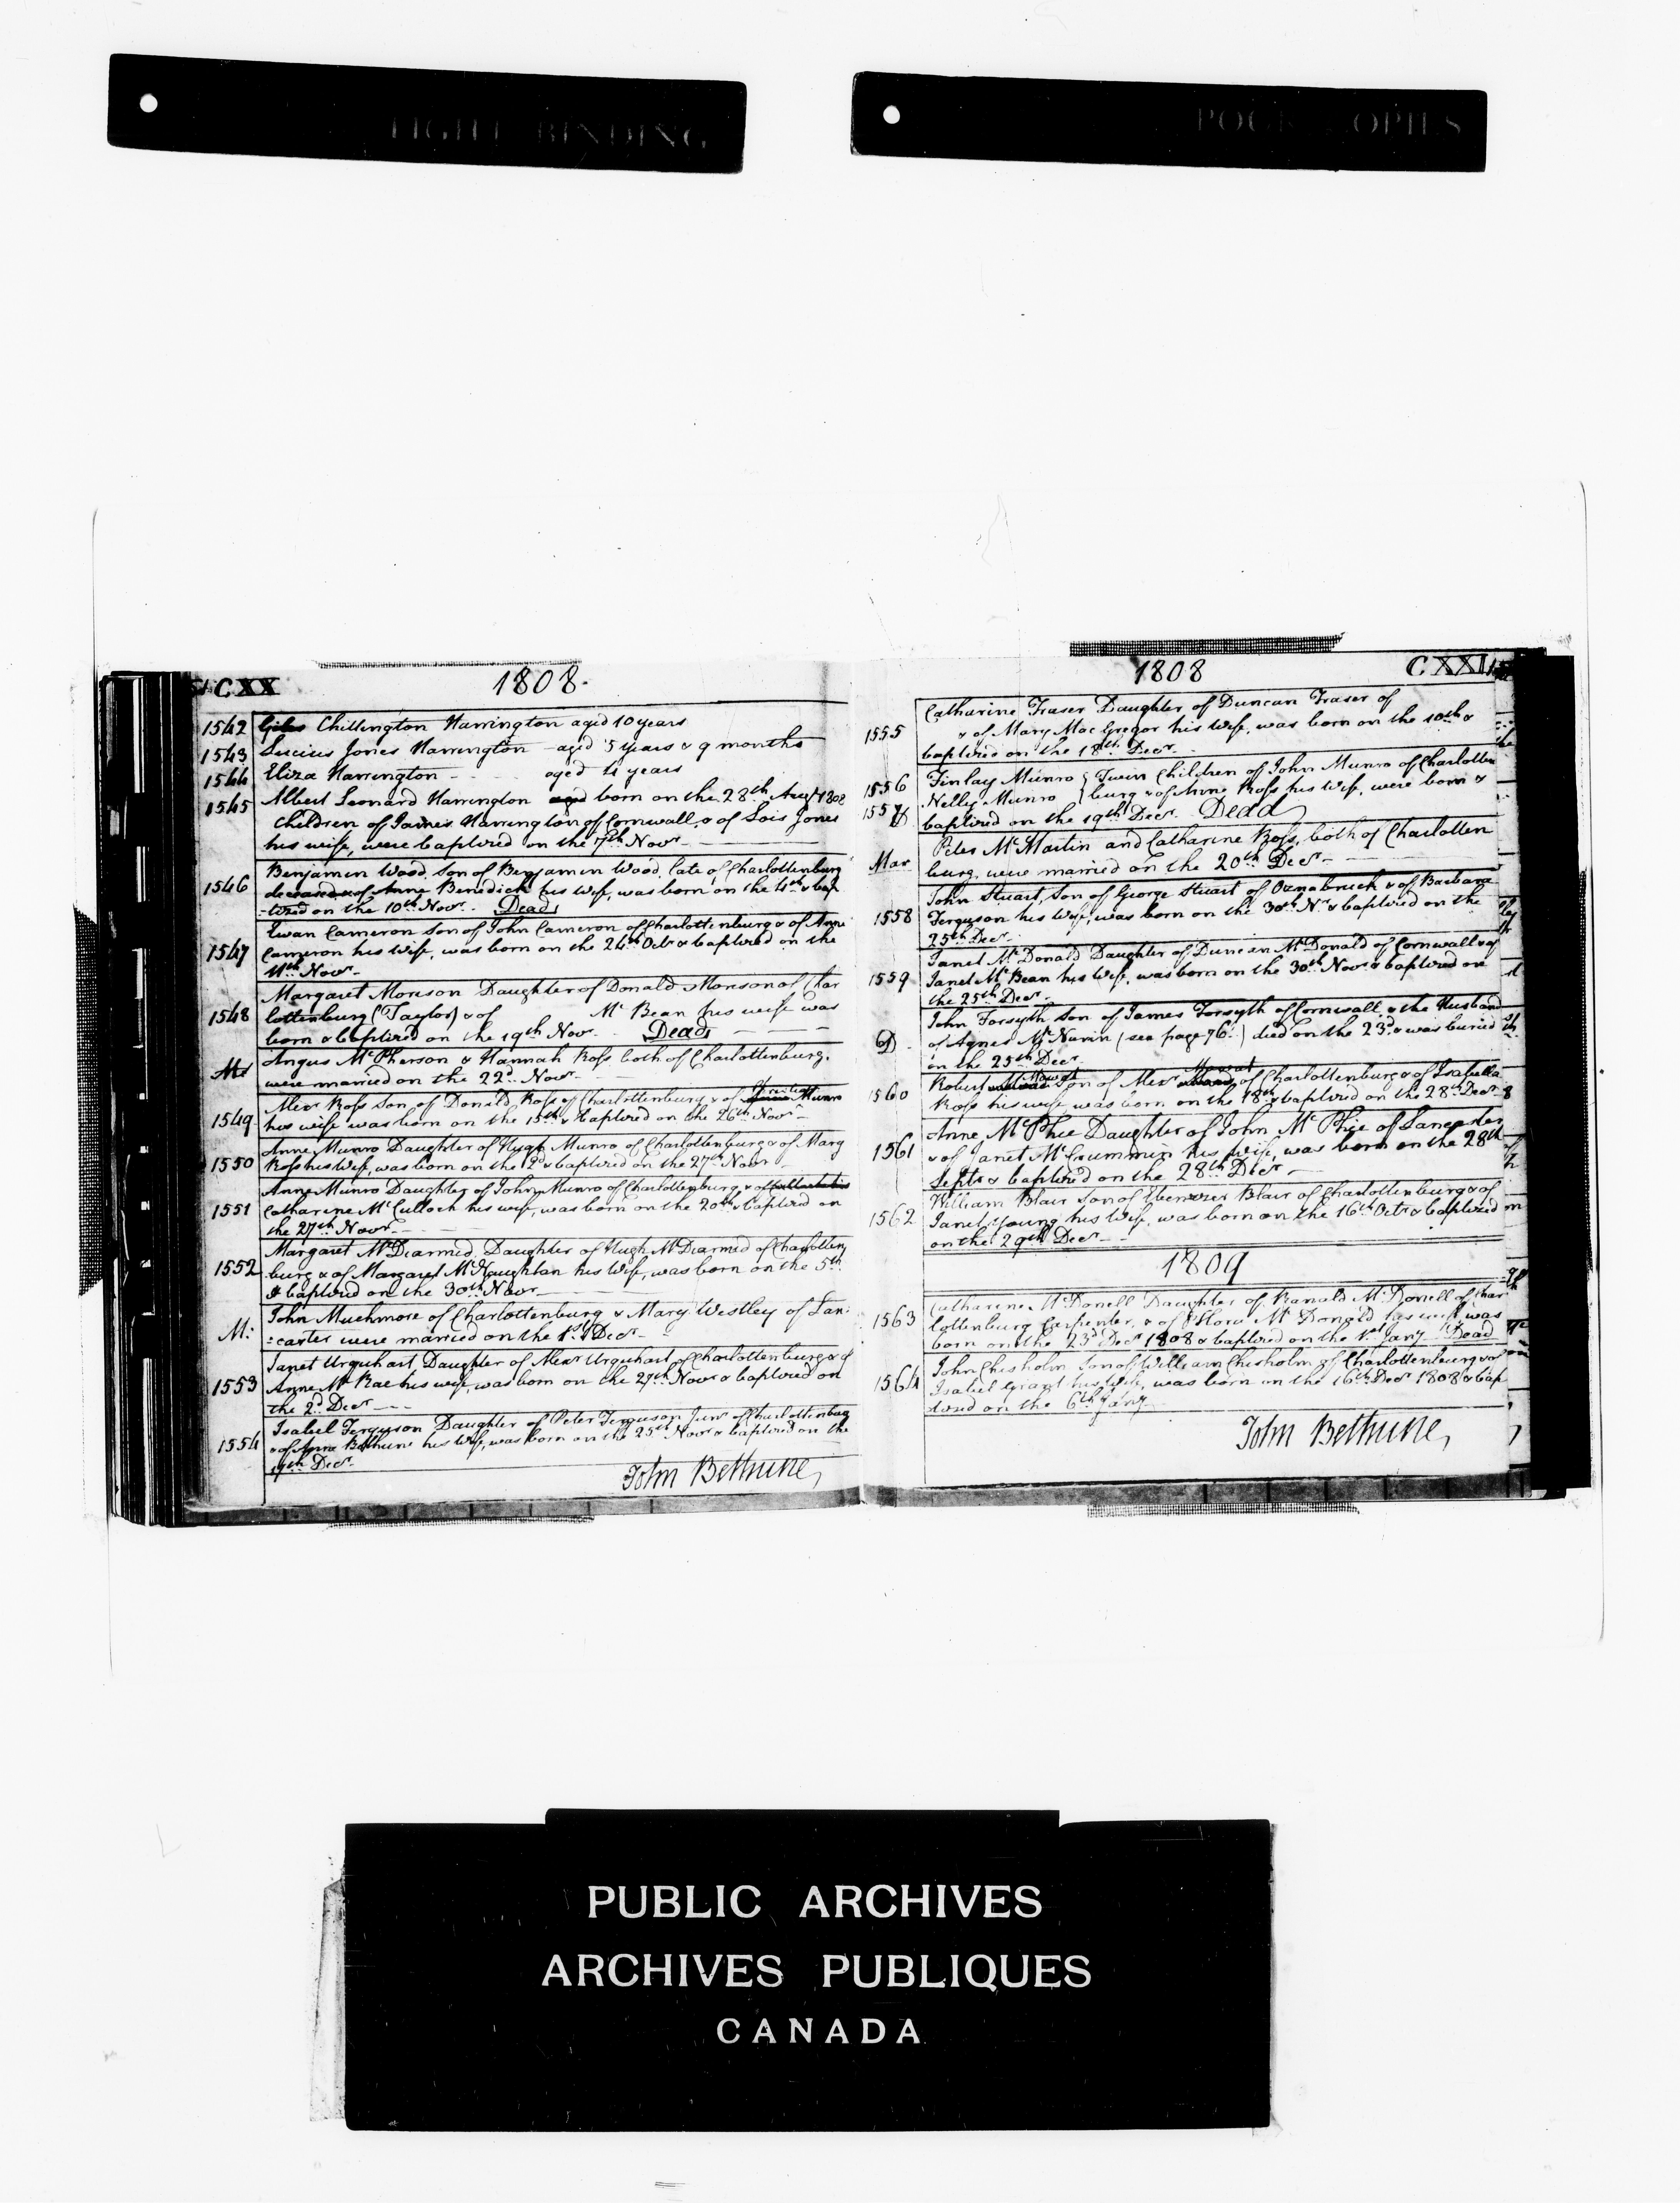 TIGHT BINDING
POOR COPIES
CXX 1808.
1542 Giles Chillington Harrington aged 10 years
1543 Lucius Jones Harrington aged 5 years & 9 months
1544 Eliza Harrington aged 4 years
1545 Albert Leonard Harrington aged born on the 28th Augt 1808
Children of James Harrington of Cornwall & of Lois Jones
his wife, were baptized on the 7th Novr
1546 Benjamin Wood, Son of Benjamin Wood, late of Charlottenburg
deceased & of Anne Benedict his Wife, was born on the 4th & bap
tized on the 10th Novr. Dead
1547 Ewan Cameron Son of John Cameron of Charlottenburg & of Anne
Cameron his Wife, was born on the 24th Octr & baptized on the
11th Novr
1548 Margaret Morison Daughter of Donald Morison of Char
lottenburg (Taylor) & of Mc Bean his wife was
born & baptized on the 19th Novr. Dead
Angus McPherson & Hannah Ross both of Charlottenburg.
were married on the 22d Novr
1549 Alexr Ross Son of Donald Ross of Charlottenburg & of Munro
his wife was born on the 15th & baptized on the 26th Novr
1550 Anne Munro Daughter of Hugh Munro of Charlottenburg & of Mary
Ross his Wife, was born on the 2d & baptized on the 27th Novr
1551 Anne Munro Daughter of John Munro of Charlottenburg & of
Catharine McCulloch his wife, was born on the 20th & baptized on
the 27th Novr
1552 Margaret McDiarmid, Daughter of Hugh McDiarmid of Charlotten
burg & of Margaret McNaughtan his Wife, was born on the 5th
& baptized on the 30th Novr
M: John Muchmore of Charlottenburg & Mary Westley of Lan:
:caster were married on the 1st Decr
1553 Janet Urquhart, Daughter of Alexr Urquhart of Charlottenburg & of
Anne McRae his wife, was born on the 27th Novr & baptized on
the 2d Decr
1554 Isabel Ferguson Daughter of Peter Ferguson Junr of Charlottenburg
& of Anne Bethune his Wife, was born on the 25th Novr & baptized on the
Decr.
John Bethune,
1808 CXXI
1555 Catharine Fraser Daughter of Duncan Fraser of
& of Mary MacGregor his Wife, was born on the 10th &
baptized on the 18th Decr.
1556 Finlay Munro } Twin Children of John Munro of Charlotten
1557 Nelly Munro } burg & of Anne Ross his Wife, were born &
D baptized on the 19th Decr. Dead
Mar Peter McMartin and Catharine Ross, both of Charlotten
burg, were married on the 20th Decr
1558 John Stuart, Son of George Stuart of Oznabruck & of Barbara
Ferguson his Wife, was born on the 30th Nr & baptized on the
25th Decr
1559 Janet McDonald Daughter of Duncan McDonald of Cornwall & of
Janet McBean his Wife, was born on the 30th Novr & baptized on
the 25th Decr
D John Forsyth Son of James Forsyth of Cornwall, & the Husband
of Agnes McNairn (see page 76.) died on the 23d & was buried
on the 25th Decr
1560 Robert Mowat Son of Alexr Mowat of Charlottenburg & of Isabella
Ross his wife was born on the 18th & baptized on the 28th Decr
1561 Anne McPhie Daughter of John McPhie of Lancaster
& of Janet McCrummin his wife, was born on the 28th
Septr & baptized on the 28th Decr
1562 William Blair Son of Ebenezer Blair of Charlottenburg & of
Janet Young his Wife, was born on the 16th Octr & baptized
on the 29th Decr
1809
1563 Catharine McDonell Daughter of Ranald McDonell of Char
lottenburg Carpenter, & of Flora McDonald his wife, was
born on the 23d Decr 1808 & baptized on the 1st Jany Dead
1564 John Chisholm Son of William Chisholm of Charlottenburg & of
Isabel Grant his Wife, was born on the 16th Decr 1808 & bap
tized on the 6th Jany
John Bethune,
PUBLIC ARCHIVES
ARCHIVES PUBLIQUES
CANADA